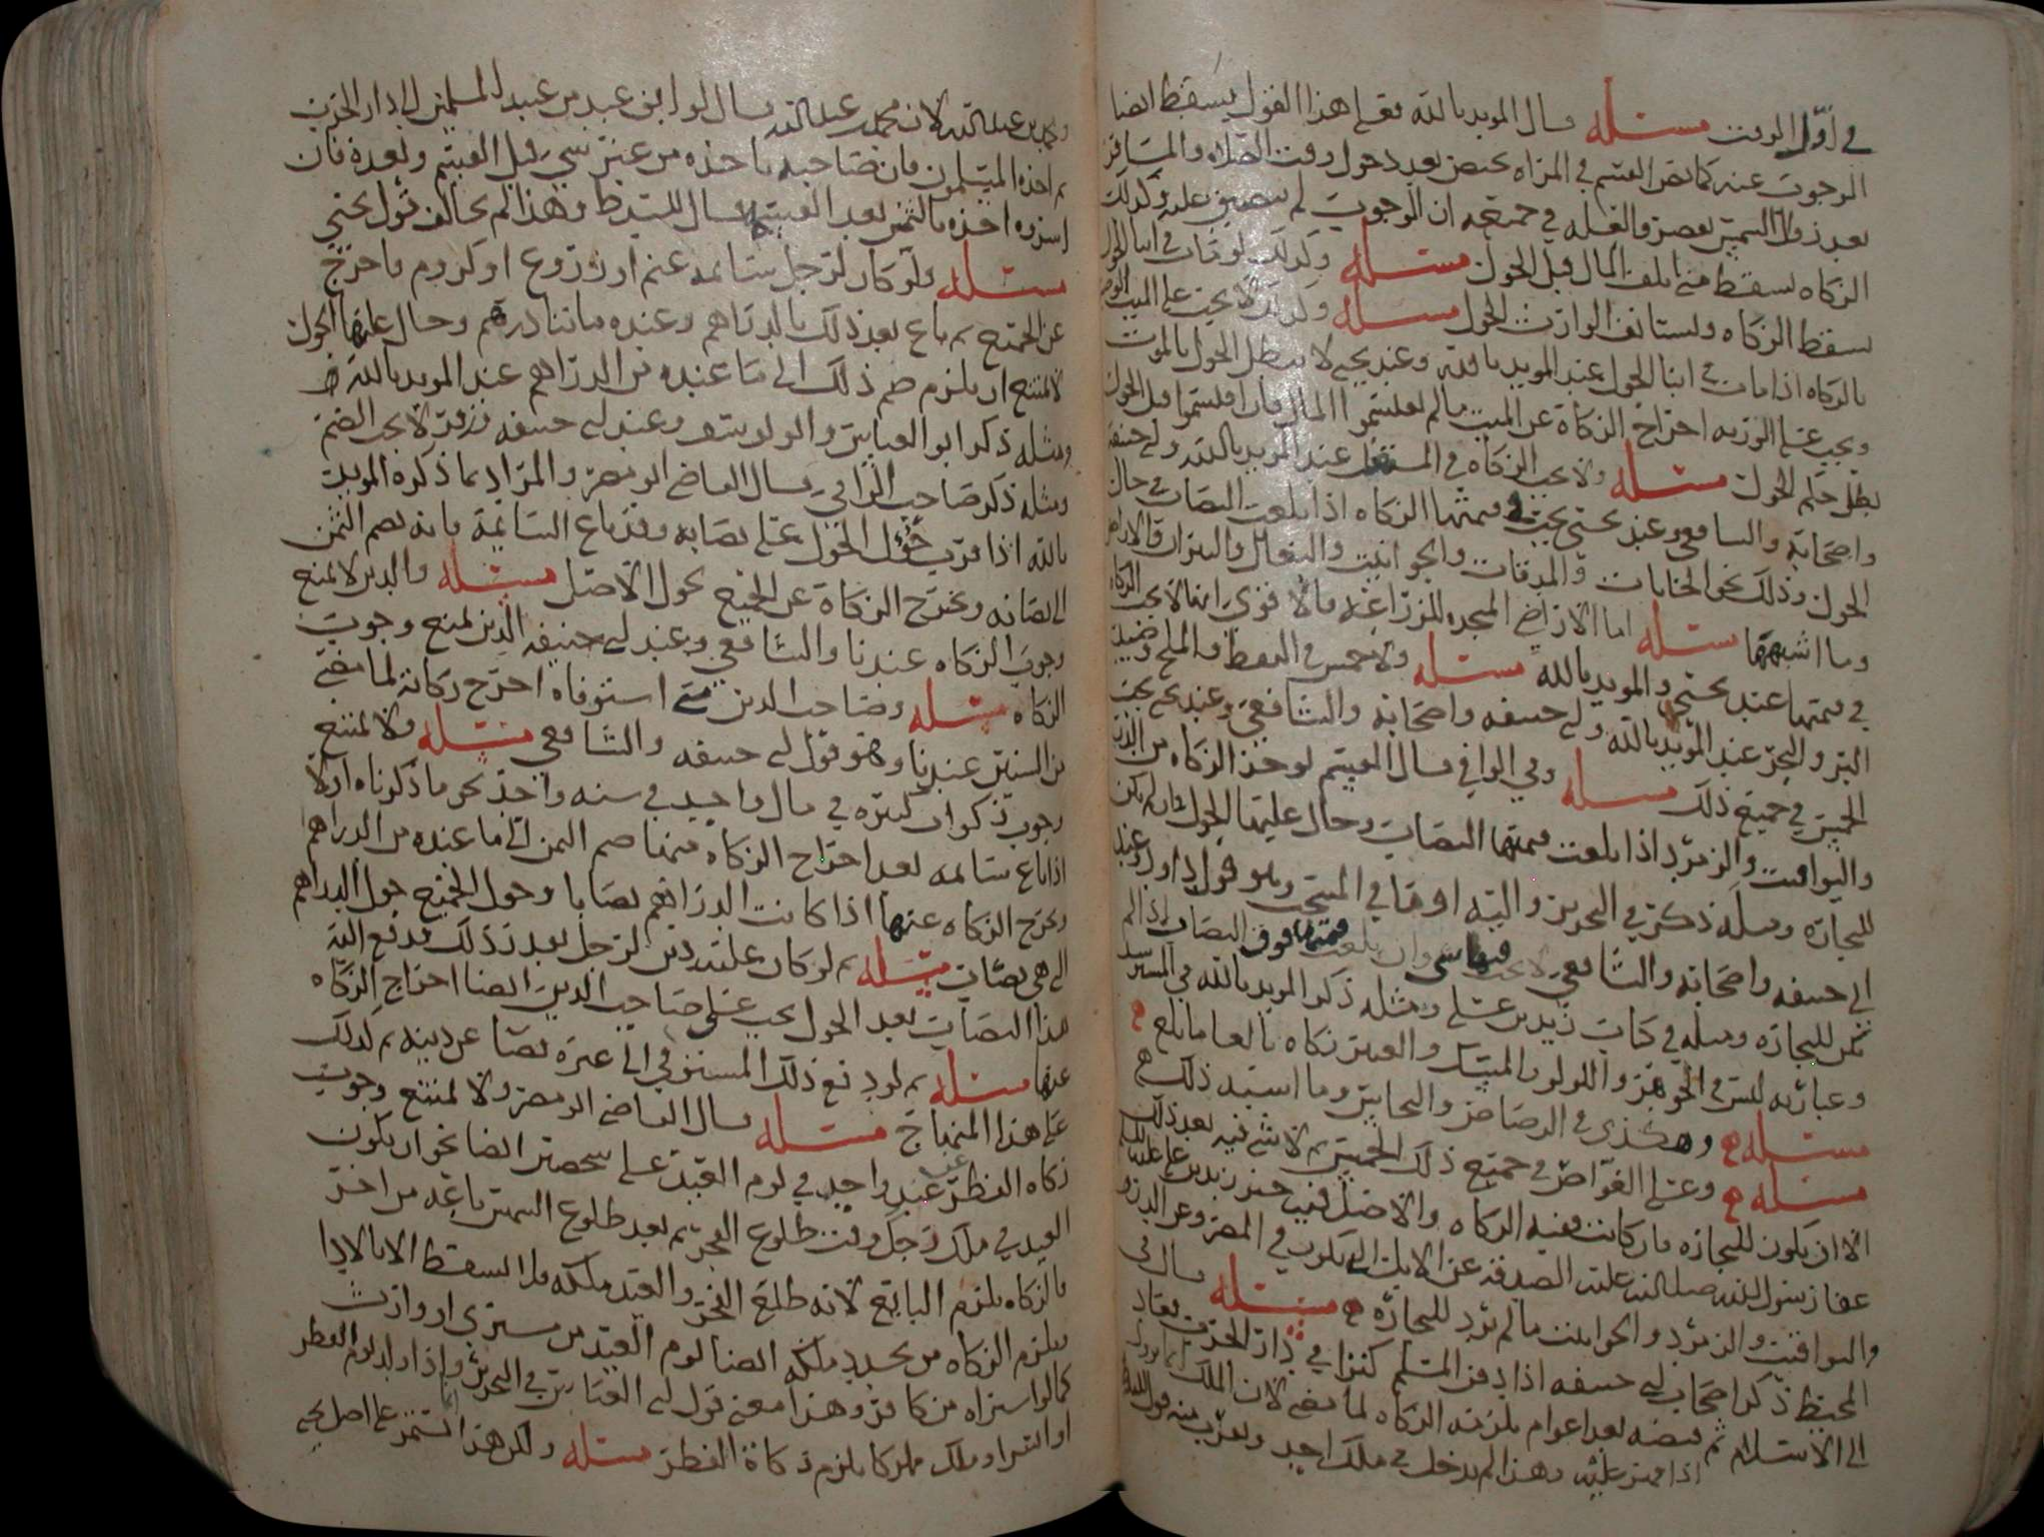 في أول الوقت مسئلة قال المويد بالله فعلى هذا القول يسقط ايضا
الوجوب عنه كما نص القسم في المراه تحيض بعد دخول وقت الصلاه والمسافر
بعد زوال الشمس بقصر والعله في جميعه ان الوجوب لم يضيق عليه وكذلك
الزكاه يسقط متى تلف المال قبل الحول مسئلة وكذلك لو مات في اثنا الحول
سقط الزكاه ويستانف الوارث الحول مسئلة وكذلك لا يجب على الميت
بالزكاه اذا مات في اثنا الحول عند المويد بالله وعند يحيى لا يبطل الحول بالموت
ويجب على الورثه اخراج الزكاة عن الميت ما لم يقتسموا المال فان اقتسموا قبل الحول
بطل حكم الحول مسئلة ولا يجب الزكاه في المستغل عند المويد بالله وابي حنيفه
واصحابه والشافعي وعند يحيى يجب في قيمتها الزكاه اذا بلغت النصاب في حال
الحول وذلك نحو الخانات والحوانيت والبغال
وما اشبهها مسئلة اما الاراضي للمزراعه فالاقوى انها لا يجب الزكاه
في قيمتها عند يحيى والمويد بالله مسئلة ولا خمس في النفط والملح وصيد
البر والبحر عند المويد بالله وابي حنيفه واصحابه والشافعي وعند يحيى يجب
الخمس في جميع ذلك مسئلة وفي الوافي قال القسم يوخذ الزكاه من الدر
واليواقيت والزمرد اذا بلغت قيمتها النصاب وحال عليها الحول وان لم يكن
للتجاره ومثله ذكر في التحرير واليه اوما في المنتخب وهو قول داود وعند
ابي حنيفه واصحابه والشافعي لا يجب فيها شي وان بلغت قيمتها فوق النصاب اذا لم
تكن للتجاره ومثله في كتاب زيد بن علي ومثله ذكر المويد بالله في
وعبارته ليس في الجوهر واللولو والمسك والعنبر زكاه بالغا ما بلغ
مسئلة وهكذى في الرصاص والنحاس وما اشبه ذلك
مسئلة وعلى الغواص في جميع ذلك الخمس ثم لا شي فيه بعد ذلك
الا ان يكون للتجاره فان كانت ففيه الزكاه والاصل فيه خبر زيد بن علي عليه
عفا رسول الله صلى الله عليه الصدقه عن الابل التي تكون في المصر وعن الدرر
واليواقيت والزمرد ما لم يرد للتجاره مسئلة قال في
المحيط ذكر اصحاب ابي حنيفه اذا دفن المسلم كنزا في دار الحرب
الى الاسلام ثم قبضه بعد اعوام يلزمه الزكاه لما مضى لان الملك
وهذا لم يدخل في ملك احد
ومحمد بن عبدالله لان محمد بن عبدالله قال لو ابق عبد من عبيد المسلمين الى دار الحرب
ثم اخذه المسلمون فان صاحبه ياخذه من غير شي قبل القسم وبعده فان
اشتروه اخذه بالثمن بعد القسم قال السيد ط وهذا لم يخالف قول يحيى
مسئلة ولو كان لرجل سائمه غنم او زروع او كروم فاخرج
عن الجميع ثم باع بعد ذلك بالدراهم وعنده مائتا درهم وحال عليها الحول
لا يمتنع ان يلزم ضم ذلك الى ما عنده من الدراهم عند المويد بالله
ومثله ذكر ابو العباس وابو يوسف وعند ابي حنيفه وزفر لا يجب الضم
ومثله ذكر صاحب الوافي قال القاضي ابو مضر والمراد بما ذكره المويد
بالله اذا قرب حول الحول على نصابه وقد باع السائمة فانه يضم الثمن
الى نصابه ويخرج الزكاة عن الجميع بحول الاصل مسئلة والدين لا يمنع
وجوب الزكاه عندنا والشافعي وعند ابي حنيفه الدين يمنع وجوب
الزكاه مسئلة وصاحب الدين متى استوفاه اخرج زكاته لما مضى
من السنين عندنا وهو قول ابي حنيفه والشافعي مسئلة ولا يمتنع
وجوب زكوات كثيره في مال واحد في سنه واحده نحو ما ذكرناه اولا
اذا باع سائمه بعد اخراج الزكاه منها ضم الثمن الى ما عنده من الدراهم
ويخرج الزكاه عنها اذا كانت الدراهم نصابا وحول الجميع حول الدراهم
التي هي نصاب مسئلة ثم لو كان عليه دين لرجل بعد ذلك فدفع اليه
هذا النصاب بعد الحول يجب على صاحب الدين ايضا اخراج الزكاه
عنها مسئلة ثم لو دفع ذلك المستوفي الى غيره نصا عن دينه ثم كذلك
على هذا المنهاج مسئلة قال القاضي ابو مضر ولا يمتنع وجوب
زكاه الفطر عن عبد واحد في يوم العيد على شخصين ايضا نحو ان يكون
العبد في ملك رجل وقت طلوع الفجر ثم بعد طلوع الشمس باعه من اخر
فالزكاه يلزم البايع لانه طلع الفجر والعبد ملكه فلا يسقط الا بالادا
ويلزم الزكاه من تجدد ملكه ايضا يوم العيد من مشتري او وارث
كما لو اشتراه من كافر وهذا معنى قول ابي العباس في التحرير واذا ولد يوم الفطر
او اشترا وملك مملوكا يلزم زكاة الفطر مسئلة ولكن هذا يستمر على اصل يحيى